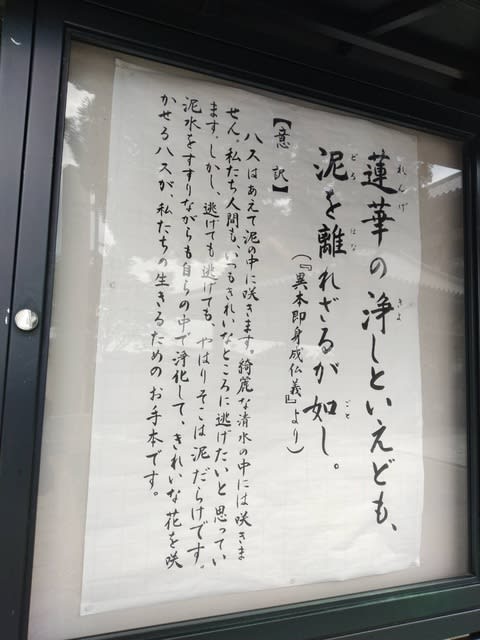 蓮華の浄しといえども、
泥を離れざるが如し。
(『異本即身成仏義』より)
【意訳】
ハスはあえて泥の中に咲きます。綺麗な清水の中には咲きま
せん。私たち人間も、いつもきれいなところに逃げたいと思ってい
ます。しかし、逃げても逃げても、やはりそこは泥だらけです。
泥水をすすりながらも自らの中で浄化して、きれいな花を咲
かせるハスが、私たちの生きるためのお手本です。